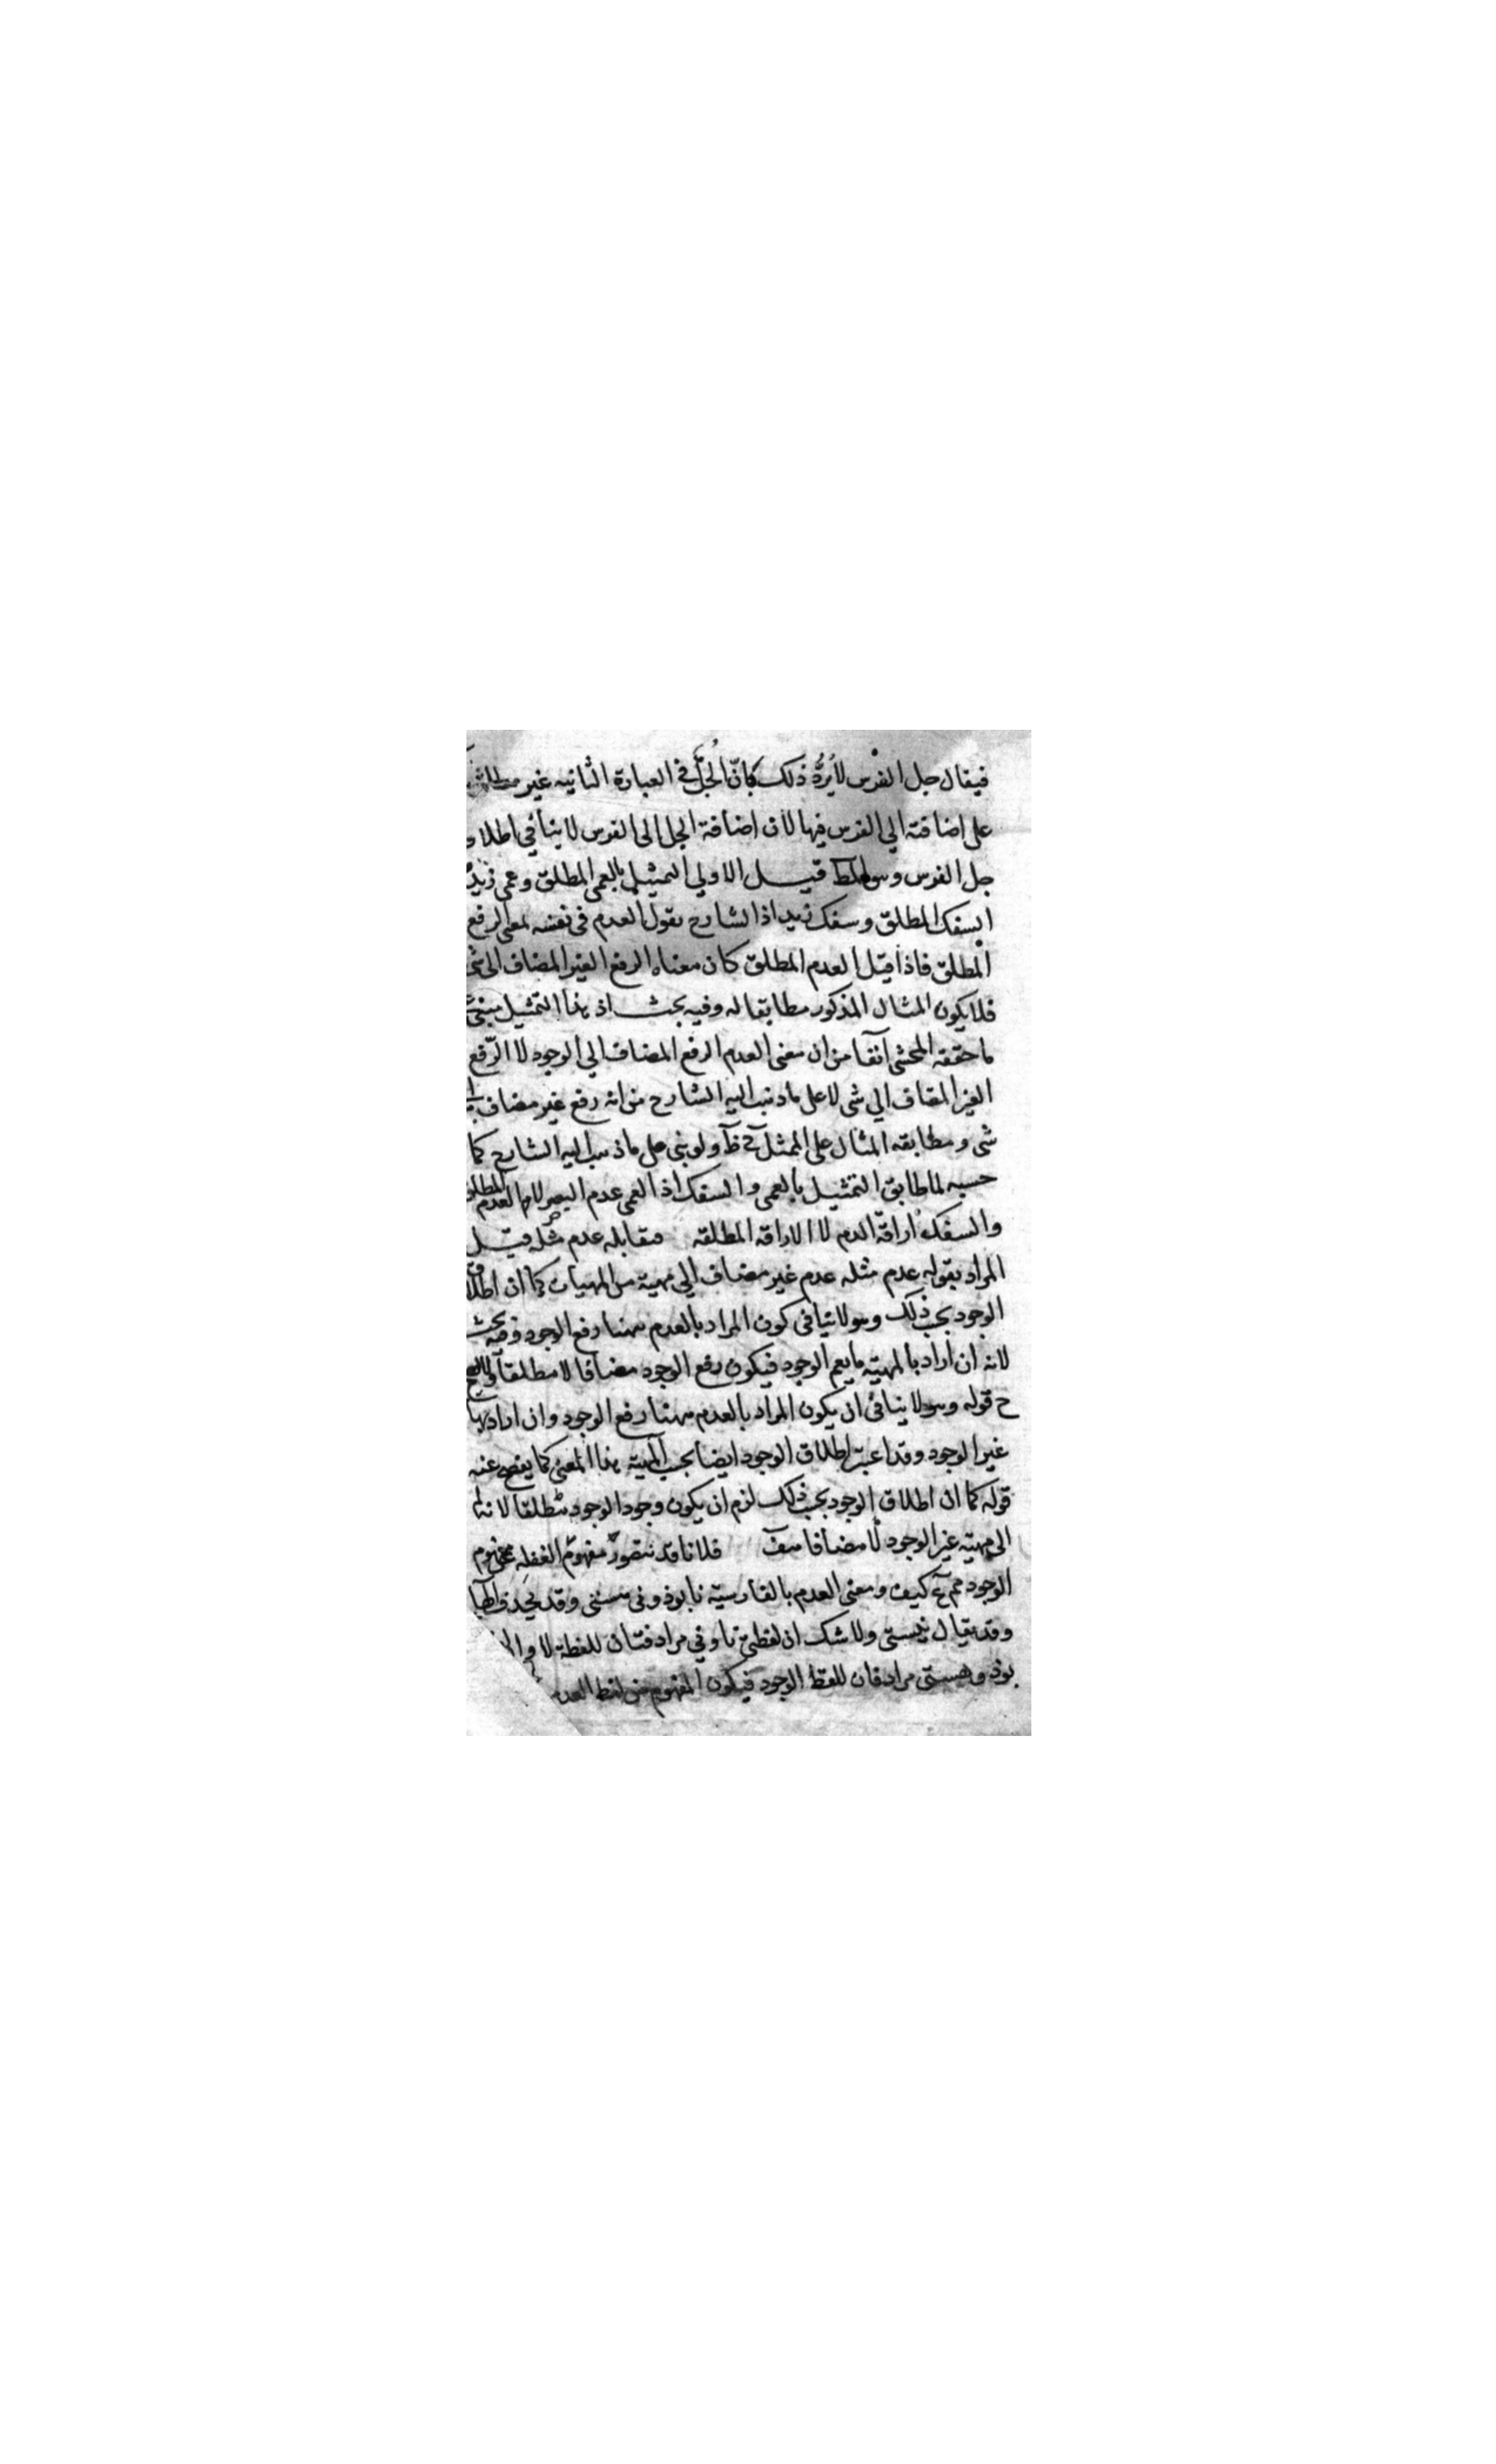 فيقال جل الفرس لا يرد ذلك كان الجل في العبارة الثانيه غير
على اضافته الي الفرس فيها لان اضافة الجل الى الفرس لا ينافي اطلاق
جل الفرس وهو قيل الاولي التمثيل بالعمى المطلق وعمى زيد
السفك المطلق وسفك زيد اذ الشارح يقول العدم في نفسه بمعنى الرفع
المطلق فاذا قيل العدم المطلق كان معناه الرفع الغير المضاف الى شى
فلا يكون المثال المذكور مطابقا له وفيه بحث اذ هذا التمثيل مبنى
ما حققه المحشى آنفا من ان معنى العدم الرفع المضاف الي الوجود لا الرفع
الغير المضاف الي شى لا على ما ذهب اليه الشارح من انه رفع غير مضاف
شى ومطابقه المثال على الممثل ح ظ ولو بنى على ما ذهب اليه الشارح كما
حسبه لما طابق التمثيل بالعمى والسفك اذ العمى عدم البصر لا العدم المطلق
والسفك اراقة الدم لا الاراقه المطلقه فيقابله عدم مثله قيل
المراد بقوله عدم مثله عدم غير مضاف الي مهية من المهيات كما ان اطلاق
الوجود بحسب ذلك وهو لا ينافي كون المراد بالعدم ههنا رفع الوجود وفيه بحث
لانه ان اراد بالمهيته ما يعم الوجود فيكون رفع الوجود مضافا لا مطلقا ولا يصح
ح قوله وهو لا ينافي ان يكون المراد بالعدم ههنا رفع الوجود وان اراد بها
غير الوجود وقد اعتبر اطلاق الوجود ايضا بحسب المهية بهذا المعنى كما يفصح عنه
قوله كما ان اطلاق الوجود بحسب ذلك لزم ان يكون وجود الوجود مطلقا لا
الى مهيته غير الوجود لا مضافا هف فلانا قد نتصور مفهوم الغفله عن مفهوم
الوجود مم كيف ومعنى العدم بالفارسية نابوذ ونى هستى وقد يحذف
وقد يقال نيستى ولا شك ان لفظتى نا وني مرادفتان للفظة لا
بوذ وهستى مرادفان للفظ الوجود فيكون المفهوم من لفظ العدم